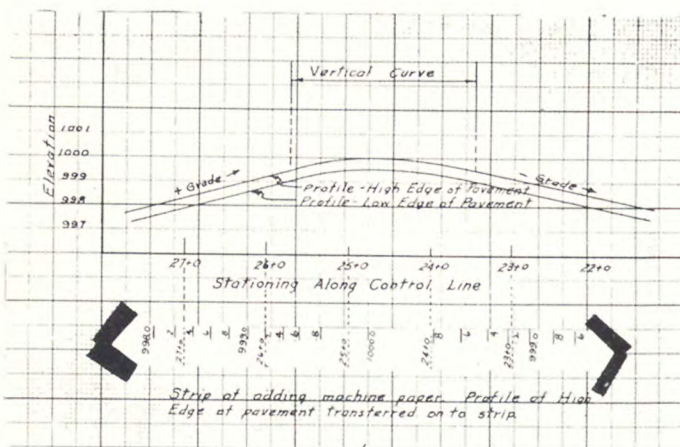 Vertical Curve
Elevation
1001
1000
999
998
997
+ Grade
- Grade
Profile-High Edge of Pavement
Profile-Low Edge of Pavement
27+0 26+0 25+0 24+0 23+0 22+0
Stationing Along Control Line
998.0 2 27+0 4 6 8 999.0 26+0 2 4 6 8 25+0 1000.0 24+0 8 6 4 23+0 2 999.0 8 6
Strip of adding machine paper. Profile of High
Edge of pavement transferred on to strip